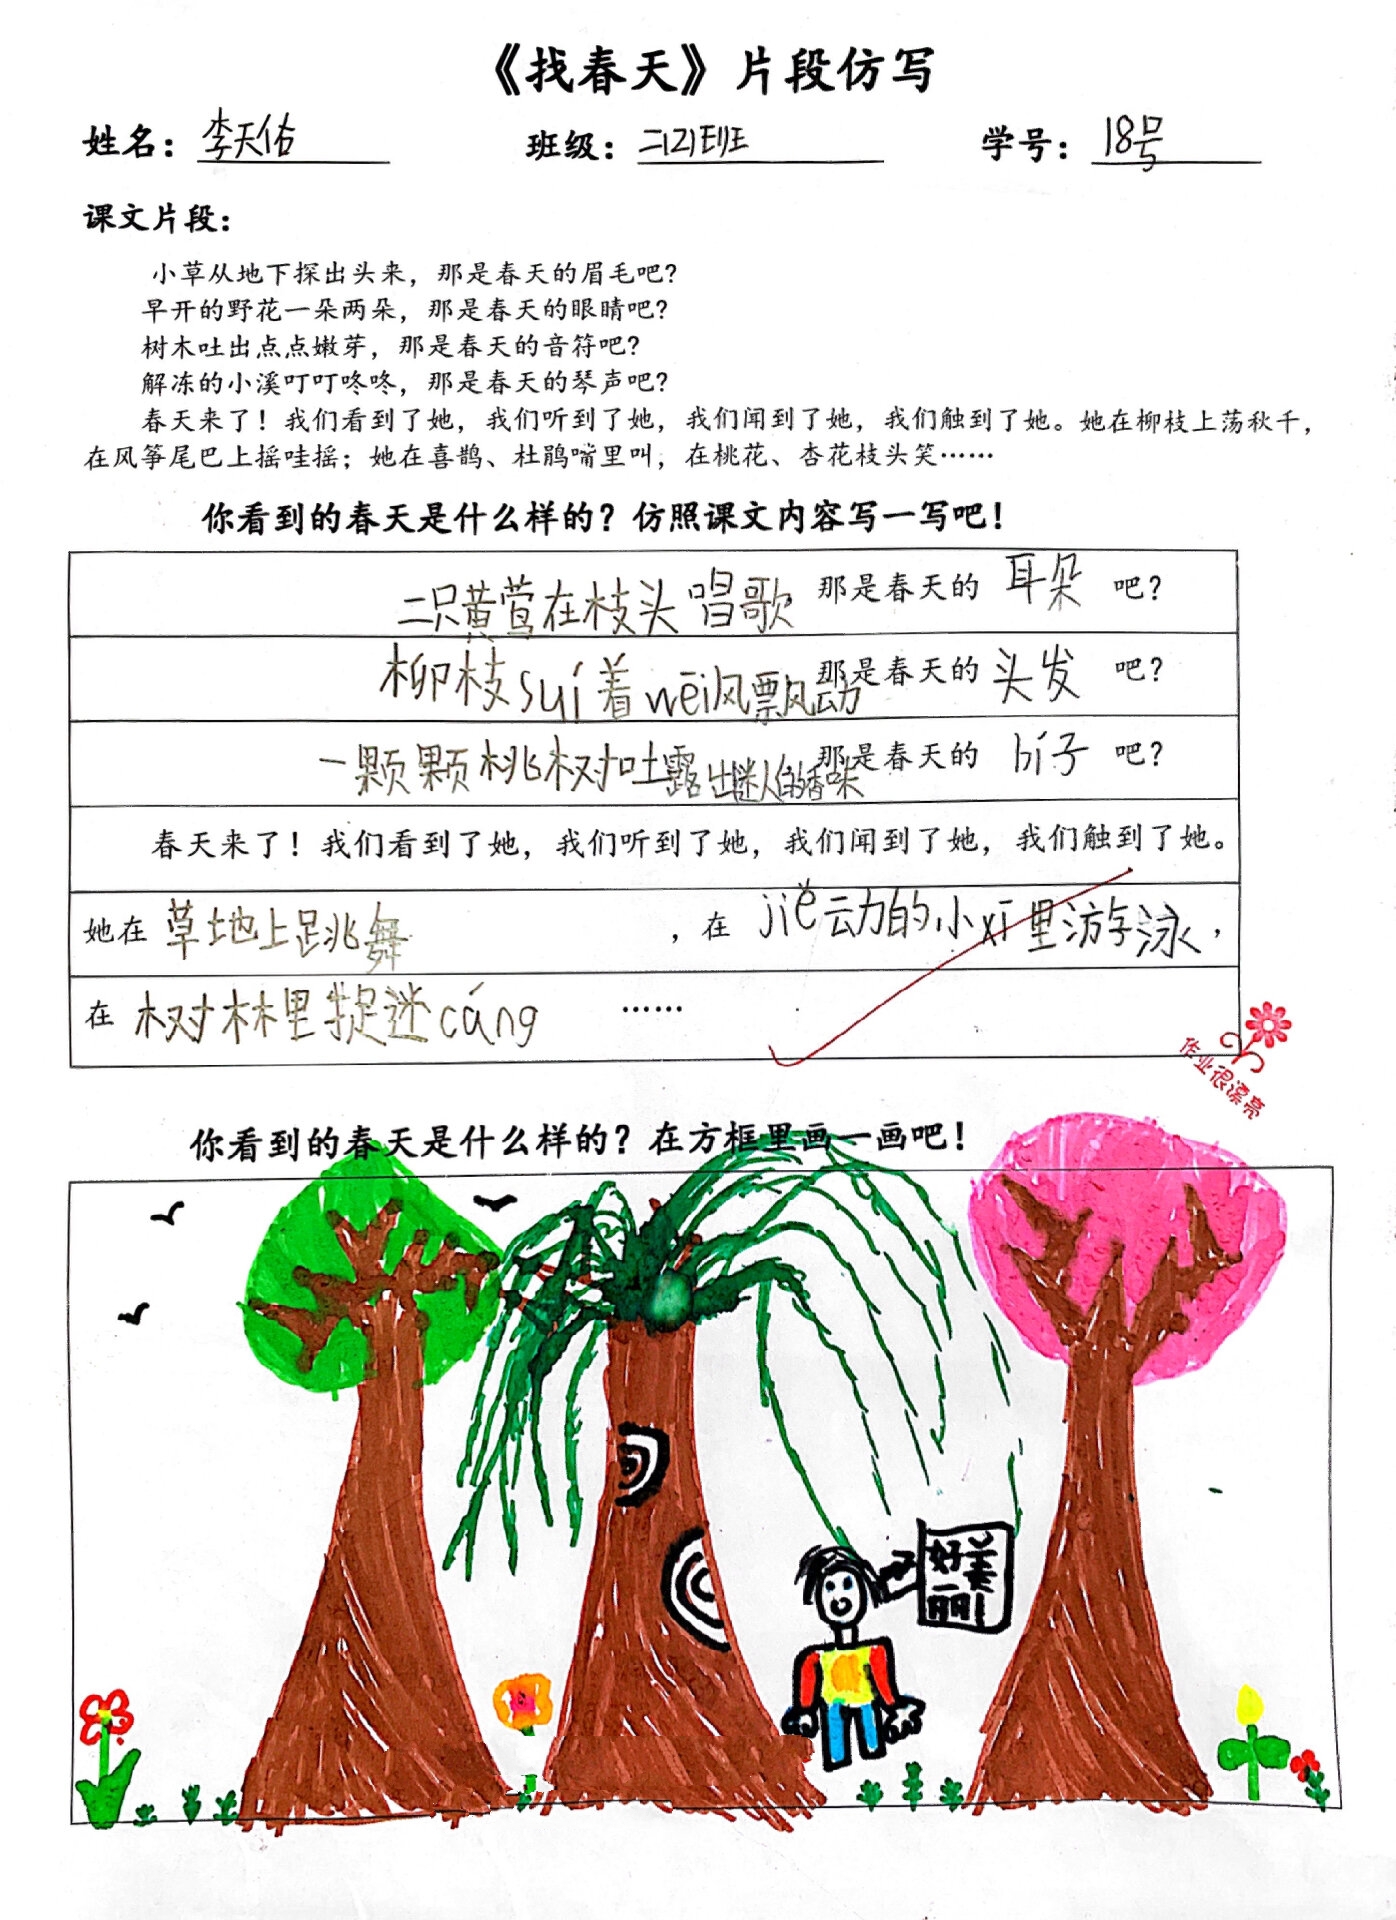 《找春天》片段仿写
姓名：李天佑 班级：二(2)班 学号：18号
课文片段：
小草从地下探出头来，那是春天的眉毛吧？
早开的野花一朵两朵，那是春天的眼睛吧？
树木吐出点点嫩芽，那是春天的音符吧？
解冻的小溪叮叮咚咚，那是春天的琴声吧？
春天来了！我们看到了她，我们听到了她，我们闻到了她，我们触到了她。她在柳枝上荡秋千，
在风筝尾巴上摇哇摇；她在喜鹊、杜鹃嘴里叫，在桃花、杏花枝头笑……
你看到的春天是什么样的？仿照课文内容写一写吧！
二只黄莺在枝头唱歌，那是春天的 耳朵 吧？
柳枝suí着wēi风飘动 那是春天的 头发 吧？
一颗颗桃树吐露出迷人的香味 那是春天的 bí子 吧？
春天来了！我们看到了她，我们听到了她，我们闻到了她，我们触到了她。
她在 草地上跳舞 ，在 jiě动的小xī里游泳，
在 树林里捉迷cáng ……
作业很漂亮
你看到的春天是什么样的？在方框里画一画吧！
好美
丽